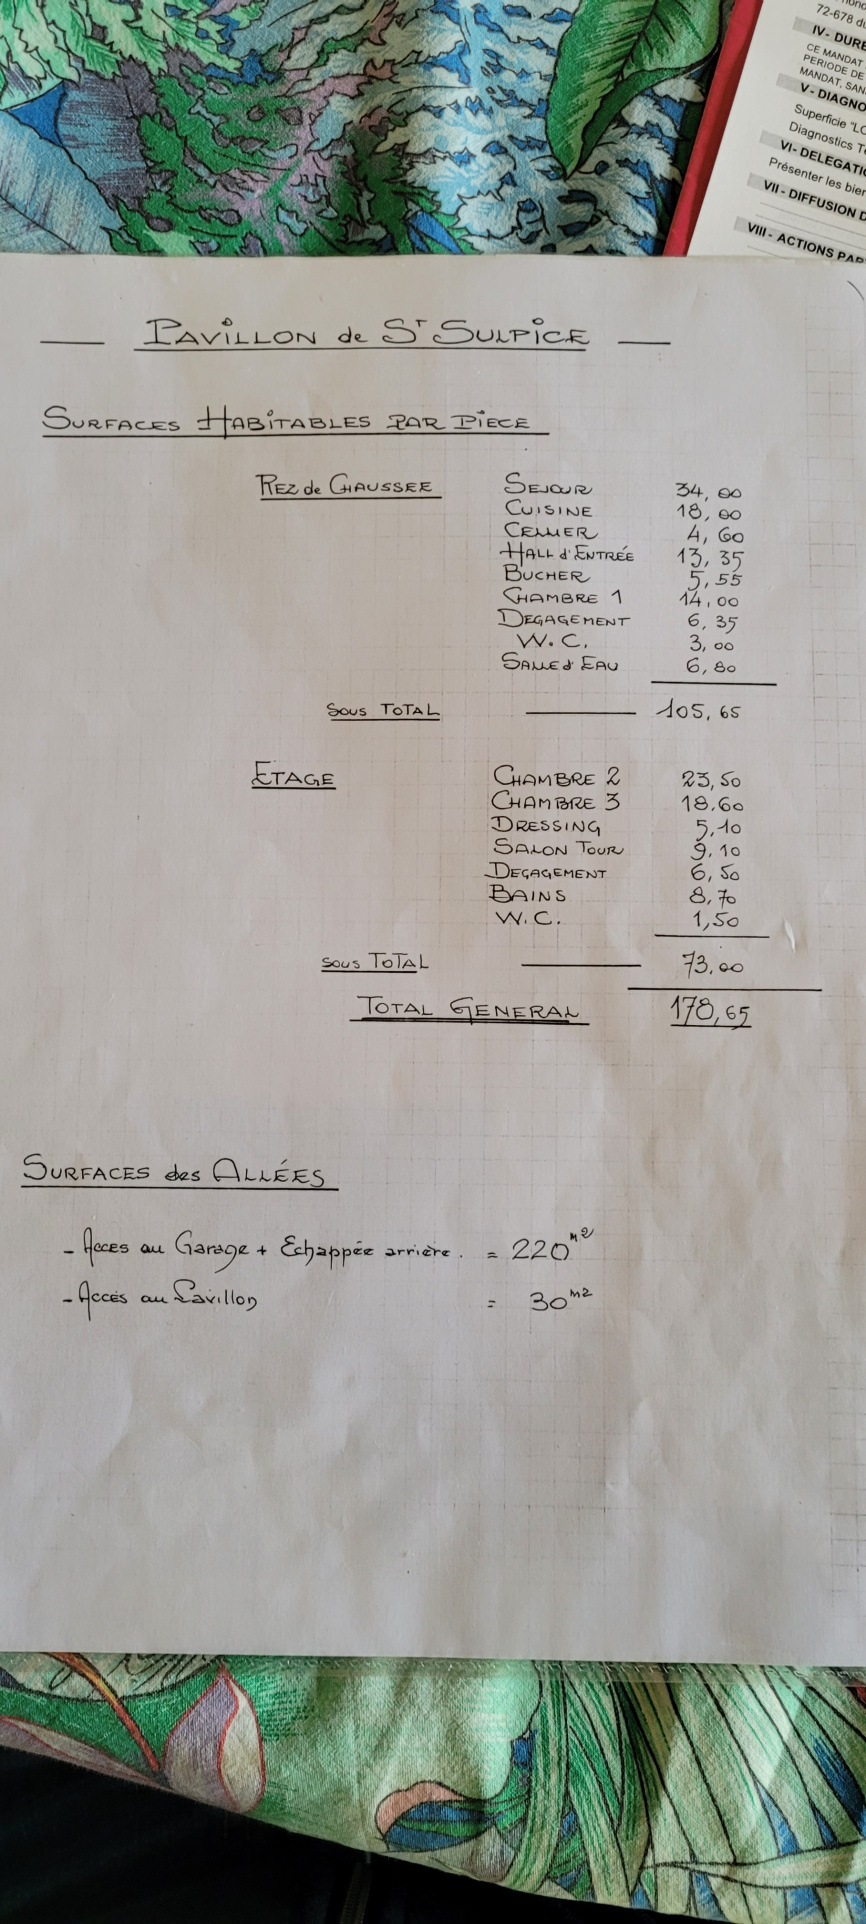 72-678 du
IV- DURE
CE MANDAT
PERIODE DE
MANDAT, SAN
V- DIAGNO
Superficie "LO
Diagnostics Te
VI- DELEGATIO
Présenter les bien
VII - DIFFUSION D
VIII - ACTIONS PAR
PAVILLON de ST SULPICE
SURFACES HABITABLES PAR PIECE
REZ de CHAUSSEE SEJOUR 34,00
CUISINE 18,00
CELLIER 4,60
HALL d'ENTRÉE 13,35
BUCHER 5,55
CHAMBRE 1 14,00
DEGAGEMENT 6,35
W.C. 3,00
SALLE d'EAU 6,80
SOUS TOTAL 105,65
ETAGE CHAMBRE 2 23,50
CHAMBRE 3 18.60
DRESSING 5,10
SALON TOUR 9,10
DEGAGEMENT 6,50
BAINS 8,70
W.C. 1,50
SOUS TOTAL 73,00
TOTAL GENERAL 178,65
SURFACES des ALLÉES
- Acces au Garage + Echappée arrière. = 220 m2
- Accés au Pavillon = 30 m2